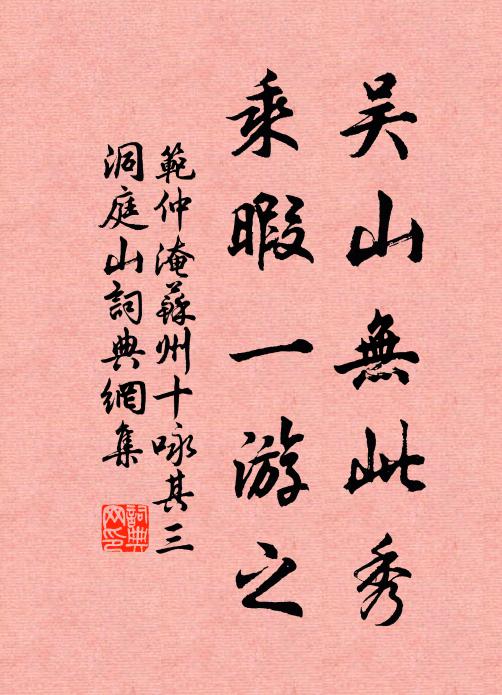 吴山無此秀
乘暇一游之
範仲淹蘇州十咏其三
洞庭山詞典網集
詞典网印